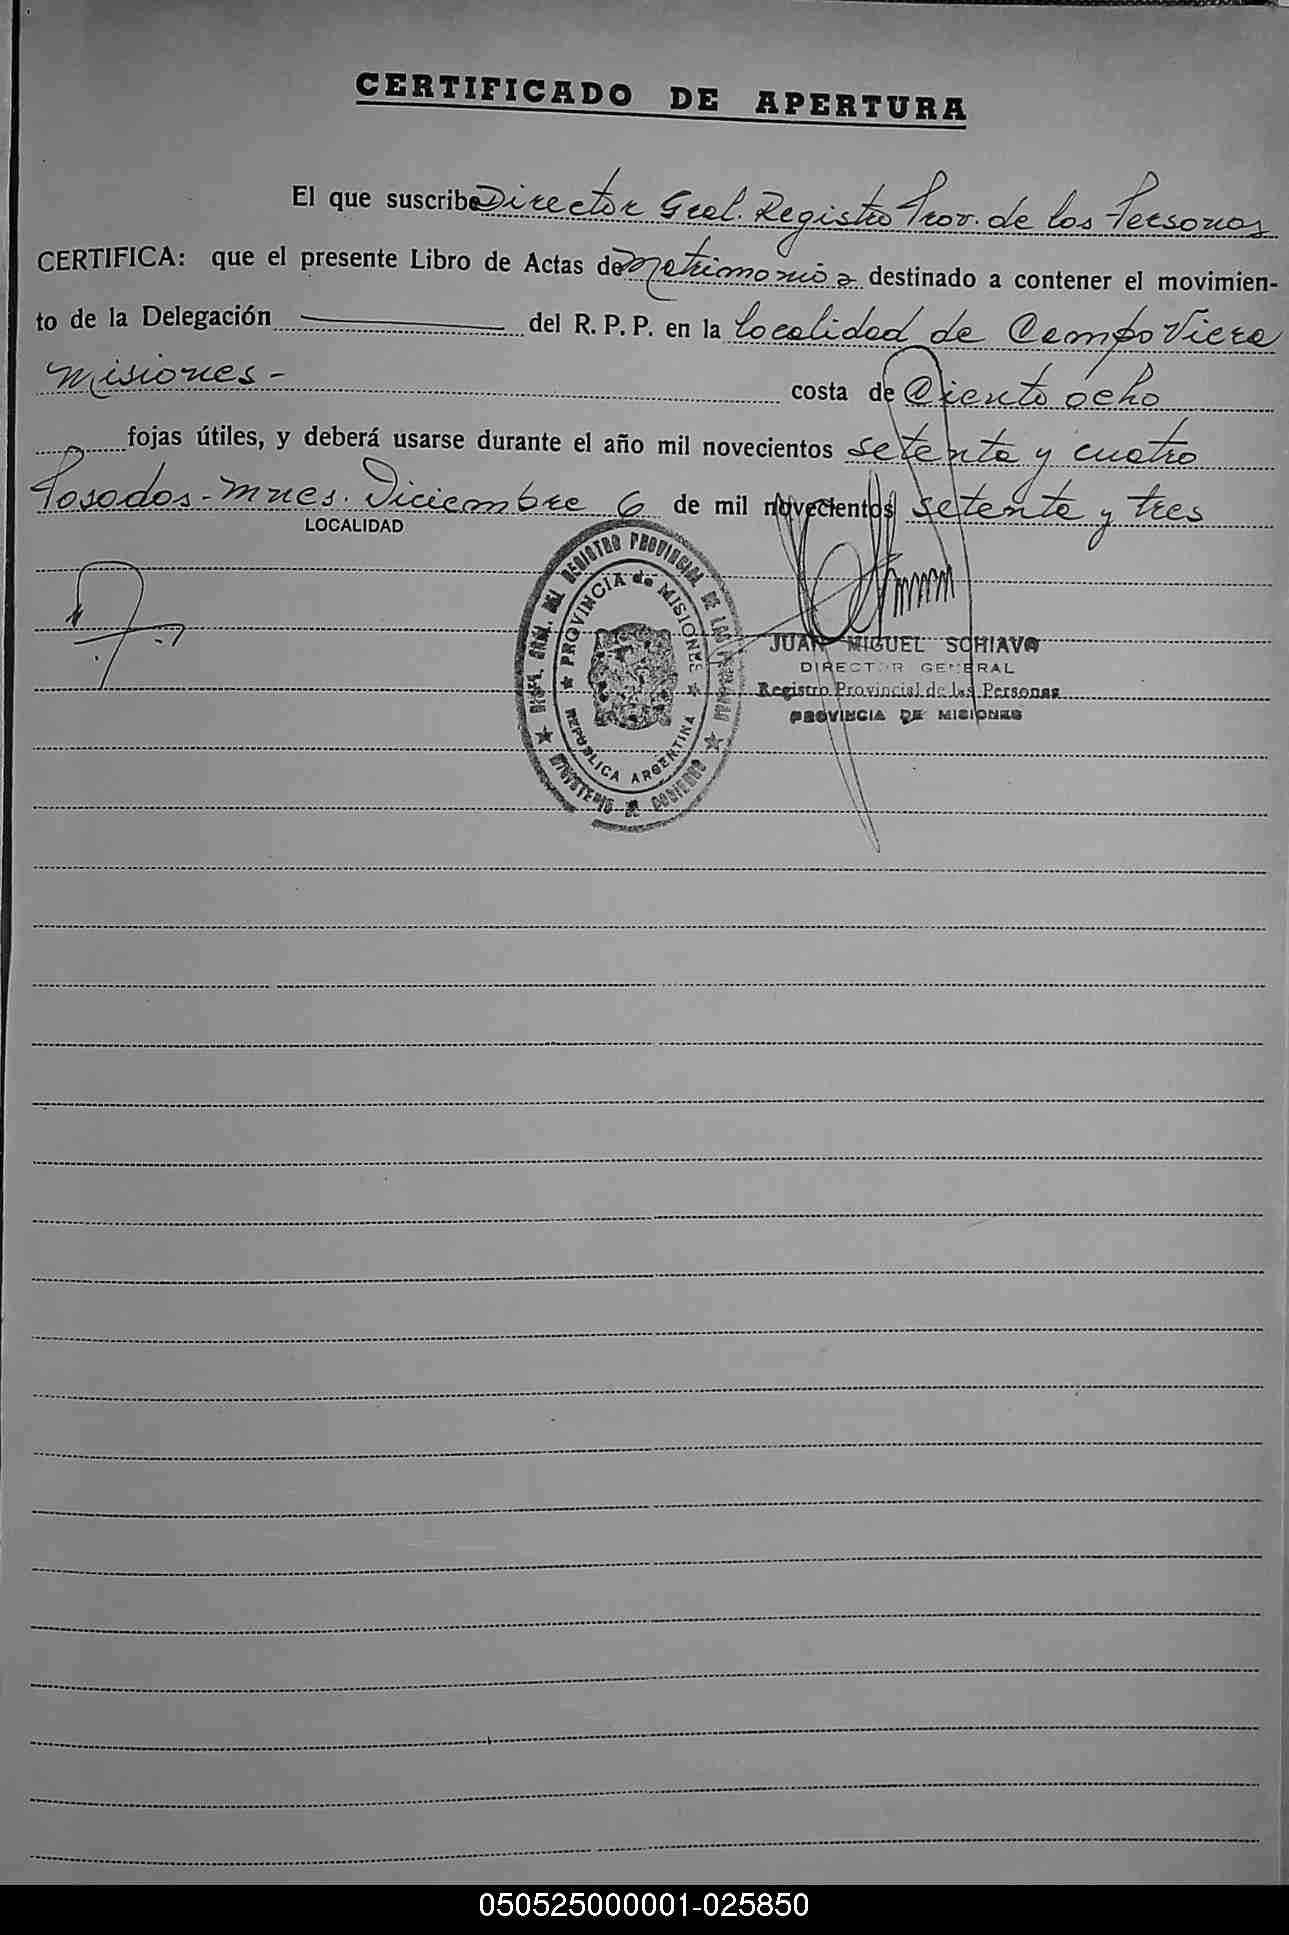 CERTIFICADO DE APERTURA
El que suscribe Director Gral. Registro Prov. de los Personas
CERTIFICA: que el presente Libro de Actas de Matrimonios destinado a contener el movimien-
to de la Delegación ——— del R. P. P. en la localidad de Campo Viera
Misiones - costa de Ciento ocho
fojas útiles, y deberá usarse durante el año mil novecientos setenta y cuatro
Posadas - Mnes. Diciembre 6 de mil novecientos setenta y tres
LOCALIDAD
DEL REGISTRO PROVINCIAL DE LAS PERSONAS
PROVINCIA de MISIONES
REPUBLICA ARGENTINA
MINISTERIO DE GOBIERNO
JUAN MIGUEL SCHIAVO
DIRECTOR GENERAL
Registro Provincial de las Personas
PROVINCIA DE MISIONES
050525000001-025850